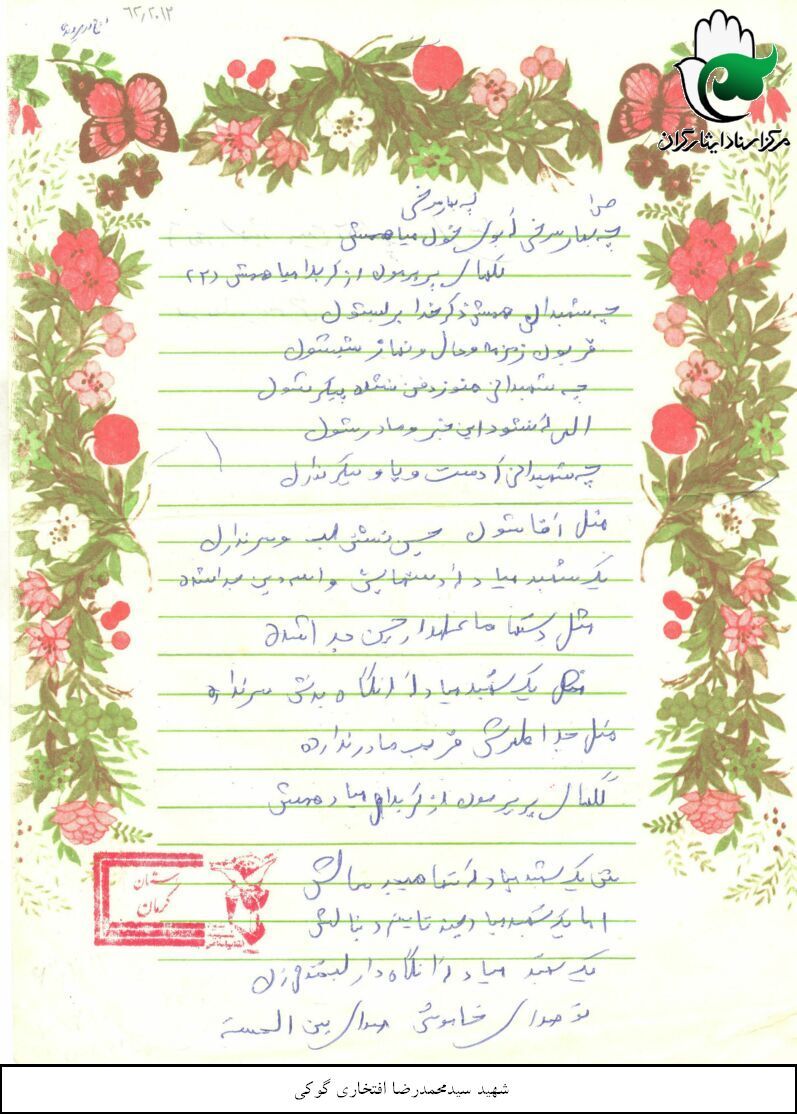 ۶۲٫۲۰۱۲
مرکز اسناد ایثارگران
چه بهار سرخی
چه بهار سرخی بوی خون میاد همش
گلهای پرپرمون از کربلا میاد همش (۲)
چه شهیدائی همش ذکر خدا بر لبشون
قربون زمزمه و حال و نماز شبشون
چه شهیدائی هنوز دفن نشده پیکرشون
الهی نشنود این خبر و مادرشون
چه شهیدائی که دست و پا و پیکر ندارن
مثل آقاشون حسین تشنه لب و سر ندارن
یک شهید میاد که دستهایش واسه دین جدا شده
مثل دستها علمدار حسین جدا شده
یک شهید میاد که انگاه بدنش سر نداره
مثل جدا اطهرش غریب مادر نداره
گلهای پرپرمون از کربلا میاد همش
یک شهید میاد که تنها
اما یک شهید میاد چند تا دنبالش
یک شهید میاد که انگاه دار لبخند زن
تو صدای خاموشی صدای
استان
کرمان
شهید سیدمحمدرضا افتخاری گوکی